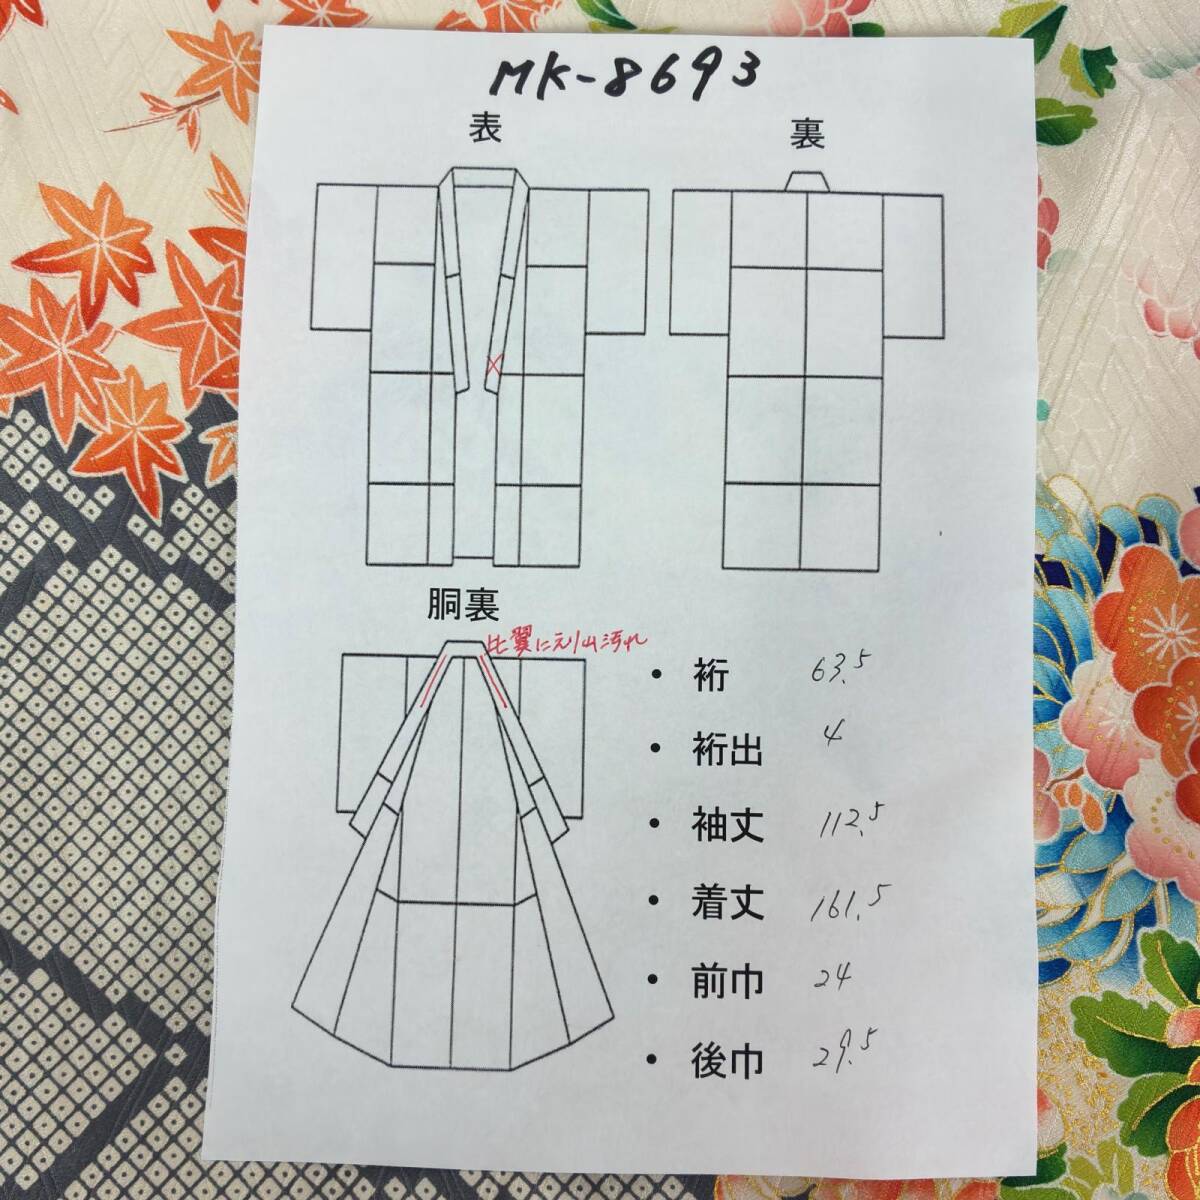 MK-8693
表
裏
胴裏
比翼にえり山汚れ
・裄 63.5
・裄出 4
・袖丈 112.5
・着丈 161.5
・前巾 24
・後巾 29.5